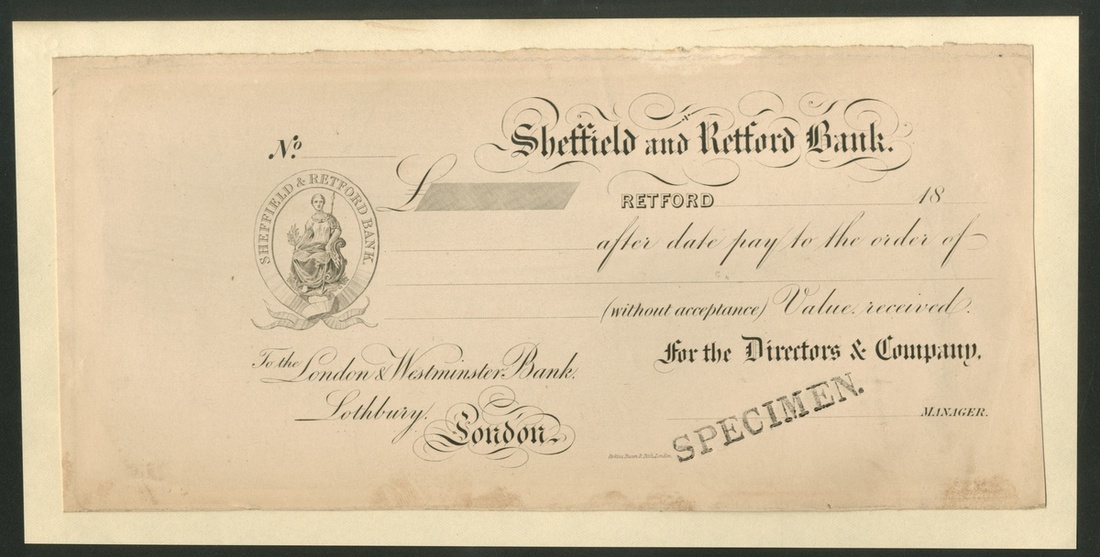 Sheffield and Retford Bank.
No.
SHEFFIELD & RETFORD BANK
£
RETFORD 18
after date pay to the order of
(without acceptance) Value received.
To the London & Westminster Bank.
Lothbury.
London.
For the Directors & Company,
MANAGER.
SPECIMEN.